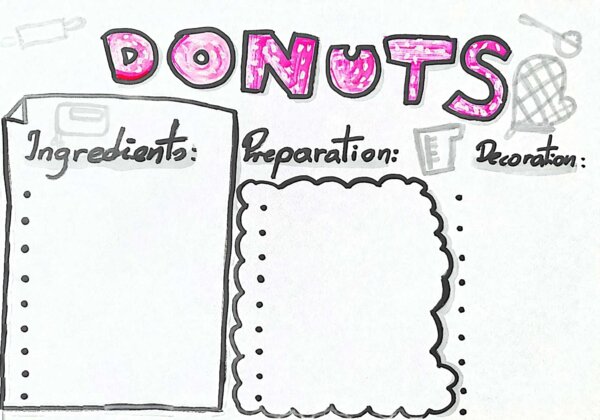 DONUTS
Ingredients:
Preparation:
Decoration: